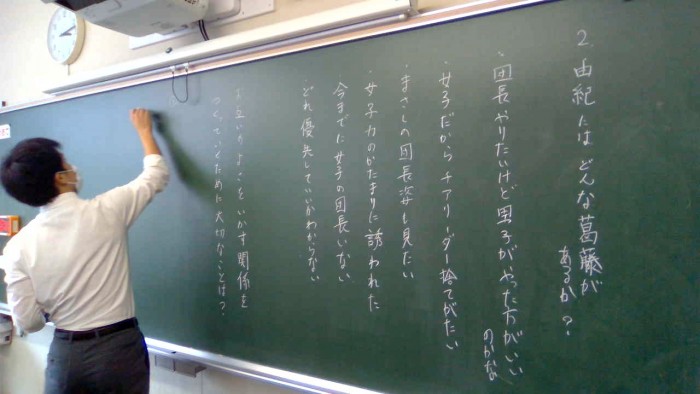 2. 由紀にはどんな葛藤が
あるか？
・団長やりたいけど男子がやった方がいい
のかな
・女子だからチアリーダー捨てがたい
・まさしの団長姿も見たい
・女子力のかたまりに誘われた
今までに女子の団長いない
・どれ優先していいかわからない
お互いのよさをいかす関係を
つくっていくために大切なことは？